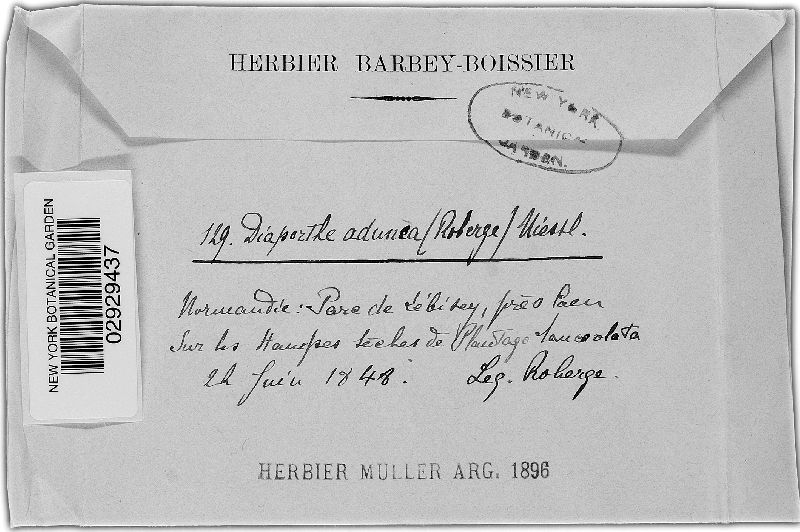 HERBIER BARBEY-BOISSIER
NEW YORK
BOTANICAL
GARDEN.
NEW YORK BOTANICAL GARDEN
02929437
129. Diaporthe adunca (Roberge) Niessl.
Normandie: Parc de Lébisey, près Caen
Sur les Hampes sèches de Plantago lanceolata
24 Juin 1848. Leg. Roberge.
HERBIER MULLER ARG. 1896